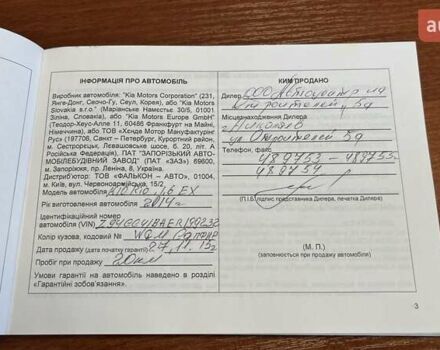 ІНФОРМАЦІЯ ПРО АВТОМОБІЛЬ
Виробник автомобіля: "Kia Motors Corporation" (231,
Янге-Донг, Сеочо-Гу, Сеул, Корея), або "Kia Motors
Slovakia s.r.o." (Маріанське Наместье 30/5, 01001
Зіліна, Словакія), або "Kia Motors Europe GmbH"
(Теодор-Хеус-Алле 11, 60486 Франкфурт на Майні,
Німеччина), або ТОВ «Хенде Мотор Мануфактурінг
Рус» (197706, Санкт – Петербург, Курортний район,
м. Сестрорецьк, Левашовське шосе, б. 20, літ. А
Російська Федерація), ПАТ "ЗАПОРІЗЬКИЙ АВТО-
МОБІЛЕБУДІВНИЙ ЗАВОД" (ПАТ «ЗАЗ») 69600,
м. Запоріжжя, пр. Леніна, 8, Україна.
Дистриб'ютор: ТОВ «ФАЛЬКОН – АВТО», 01004,
м. Київ, вул. Червоноармійська, 15/2
Модель автомобіля KIA Rio 1.6 EX
Рік виготовлення автомобіля 2014г
Ідентифікаційний номер
автомобіля (VIN)
Колір кузова, кодовий №
Дата продажу (дата початку гарантії) 07.11.15г
Пробіг при продажу 20км
Умови гарантії на автомобіль наведено в розділі
«Гарантійні зобов'язання».
КИМ ПРОДАНО
Дилер ООО Автоцентр на
Строителей, 5а
Місцезнаходження Дилера
г. Николаев
ул. Строителей 5а
Телефон, факс
489753 - 489755
489754
(П.І.Б., підпис представника Дилера, печатка Дилера)
(М. П.)
(заповнюється при продажу автомобіля)
3